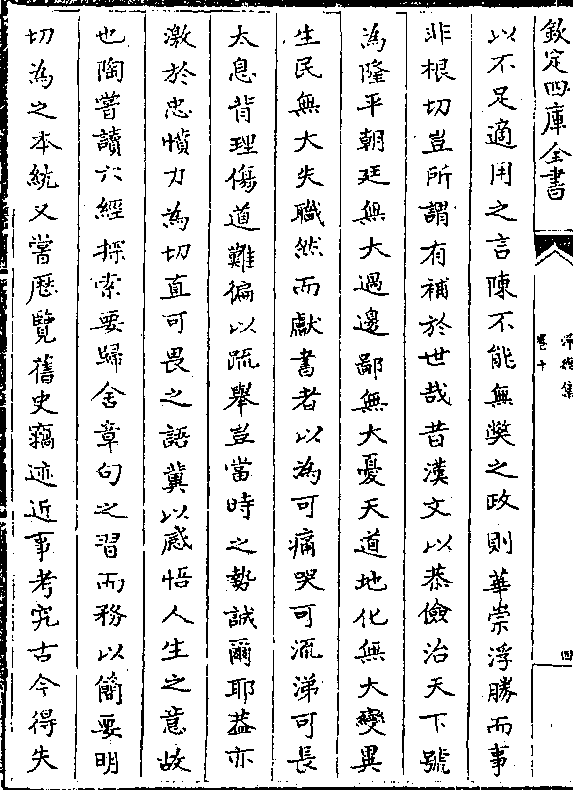 欽定四庫全書
卷十
四
以不足適用之言陳不能無獘之政則華崇浮勝而事
非根切豈所謂有補於世哉昔漢文以恭儉治天下號
為隆平朝廷無大過邊鄙無大憂天道地化無大變異
生民無大失職然而獻書者以為可痛哭可流涕可長
太息背理傷道難徧以疏舉豈當時之勢誠爾耶葢亦
激於忠憤力為切直可畏之語冀以感悟人生之意故
也陶嘗讀六經探索要歸舍章句之習而務以簡要明
切為之本統又嘗歴覽舊史竊迹近事考究古今得失